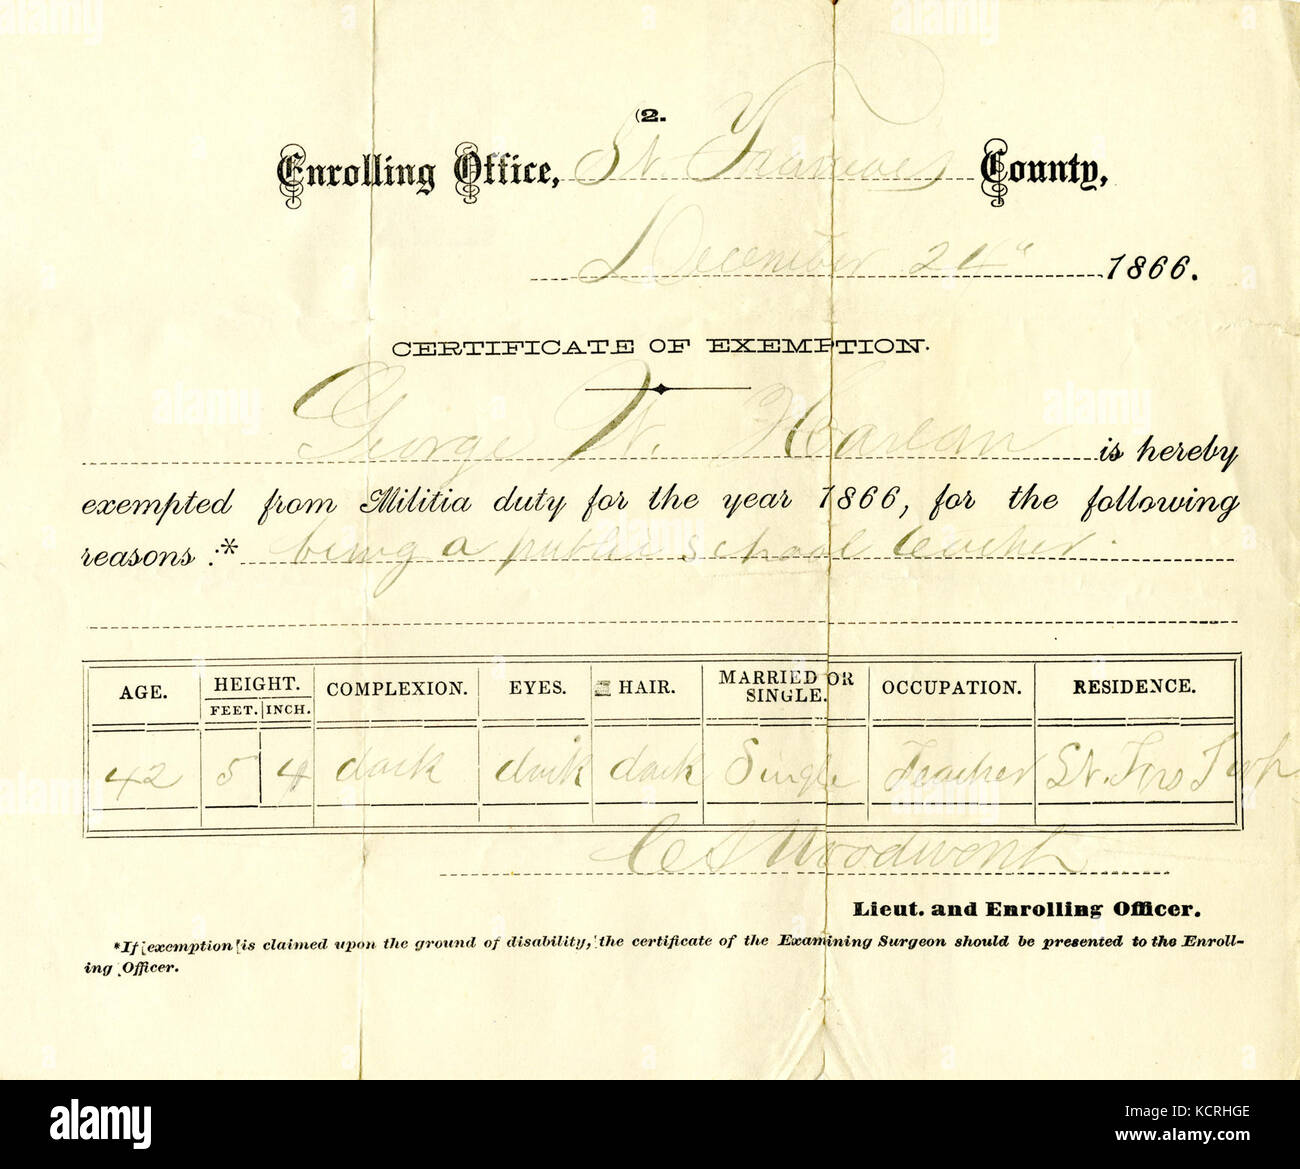 (2.
Enrolling Office, St. Francois County,
December 24th 1866.
CERTIFICATE OF EXEMPTION.
George W. Harlan is hereby
exempted from Militia duty for the year 1866, for the following
reasons :* being a public school teacher.
AGE. HEIGHT. COMPLEXION. EYES. HAIR. MARRIED OR SINGLE. OCCUPATION. RESIDENCE.
FEET. INCH.
42 5 4 dark dark dark Single Teacher St. Frs Twp
C S Woodworth
Lieut. and Enrolling Officer.
*If exemption is claimed upon the ground of disability, the certificate of the Examining Surgeon should be presented to the Enroll-
ing Officer.
alamy
Image ID: KCRHGE
www.alamy.com